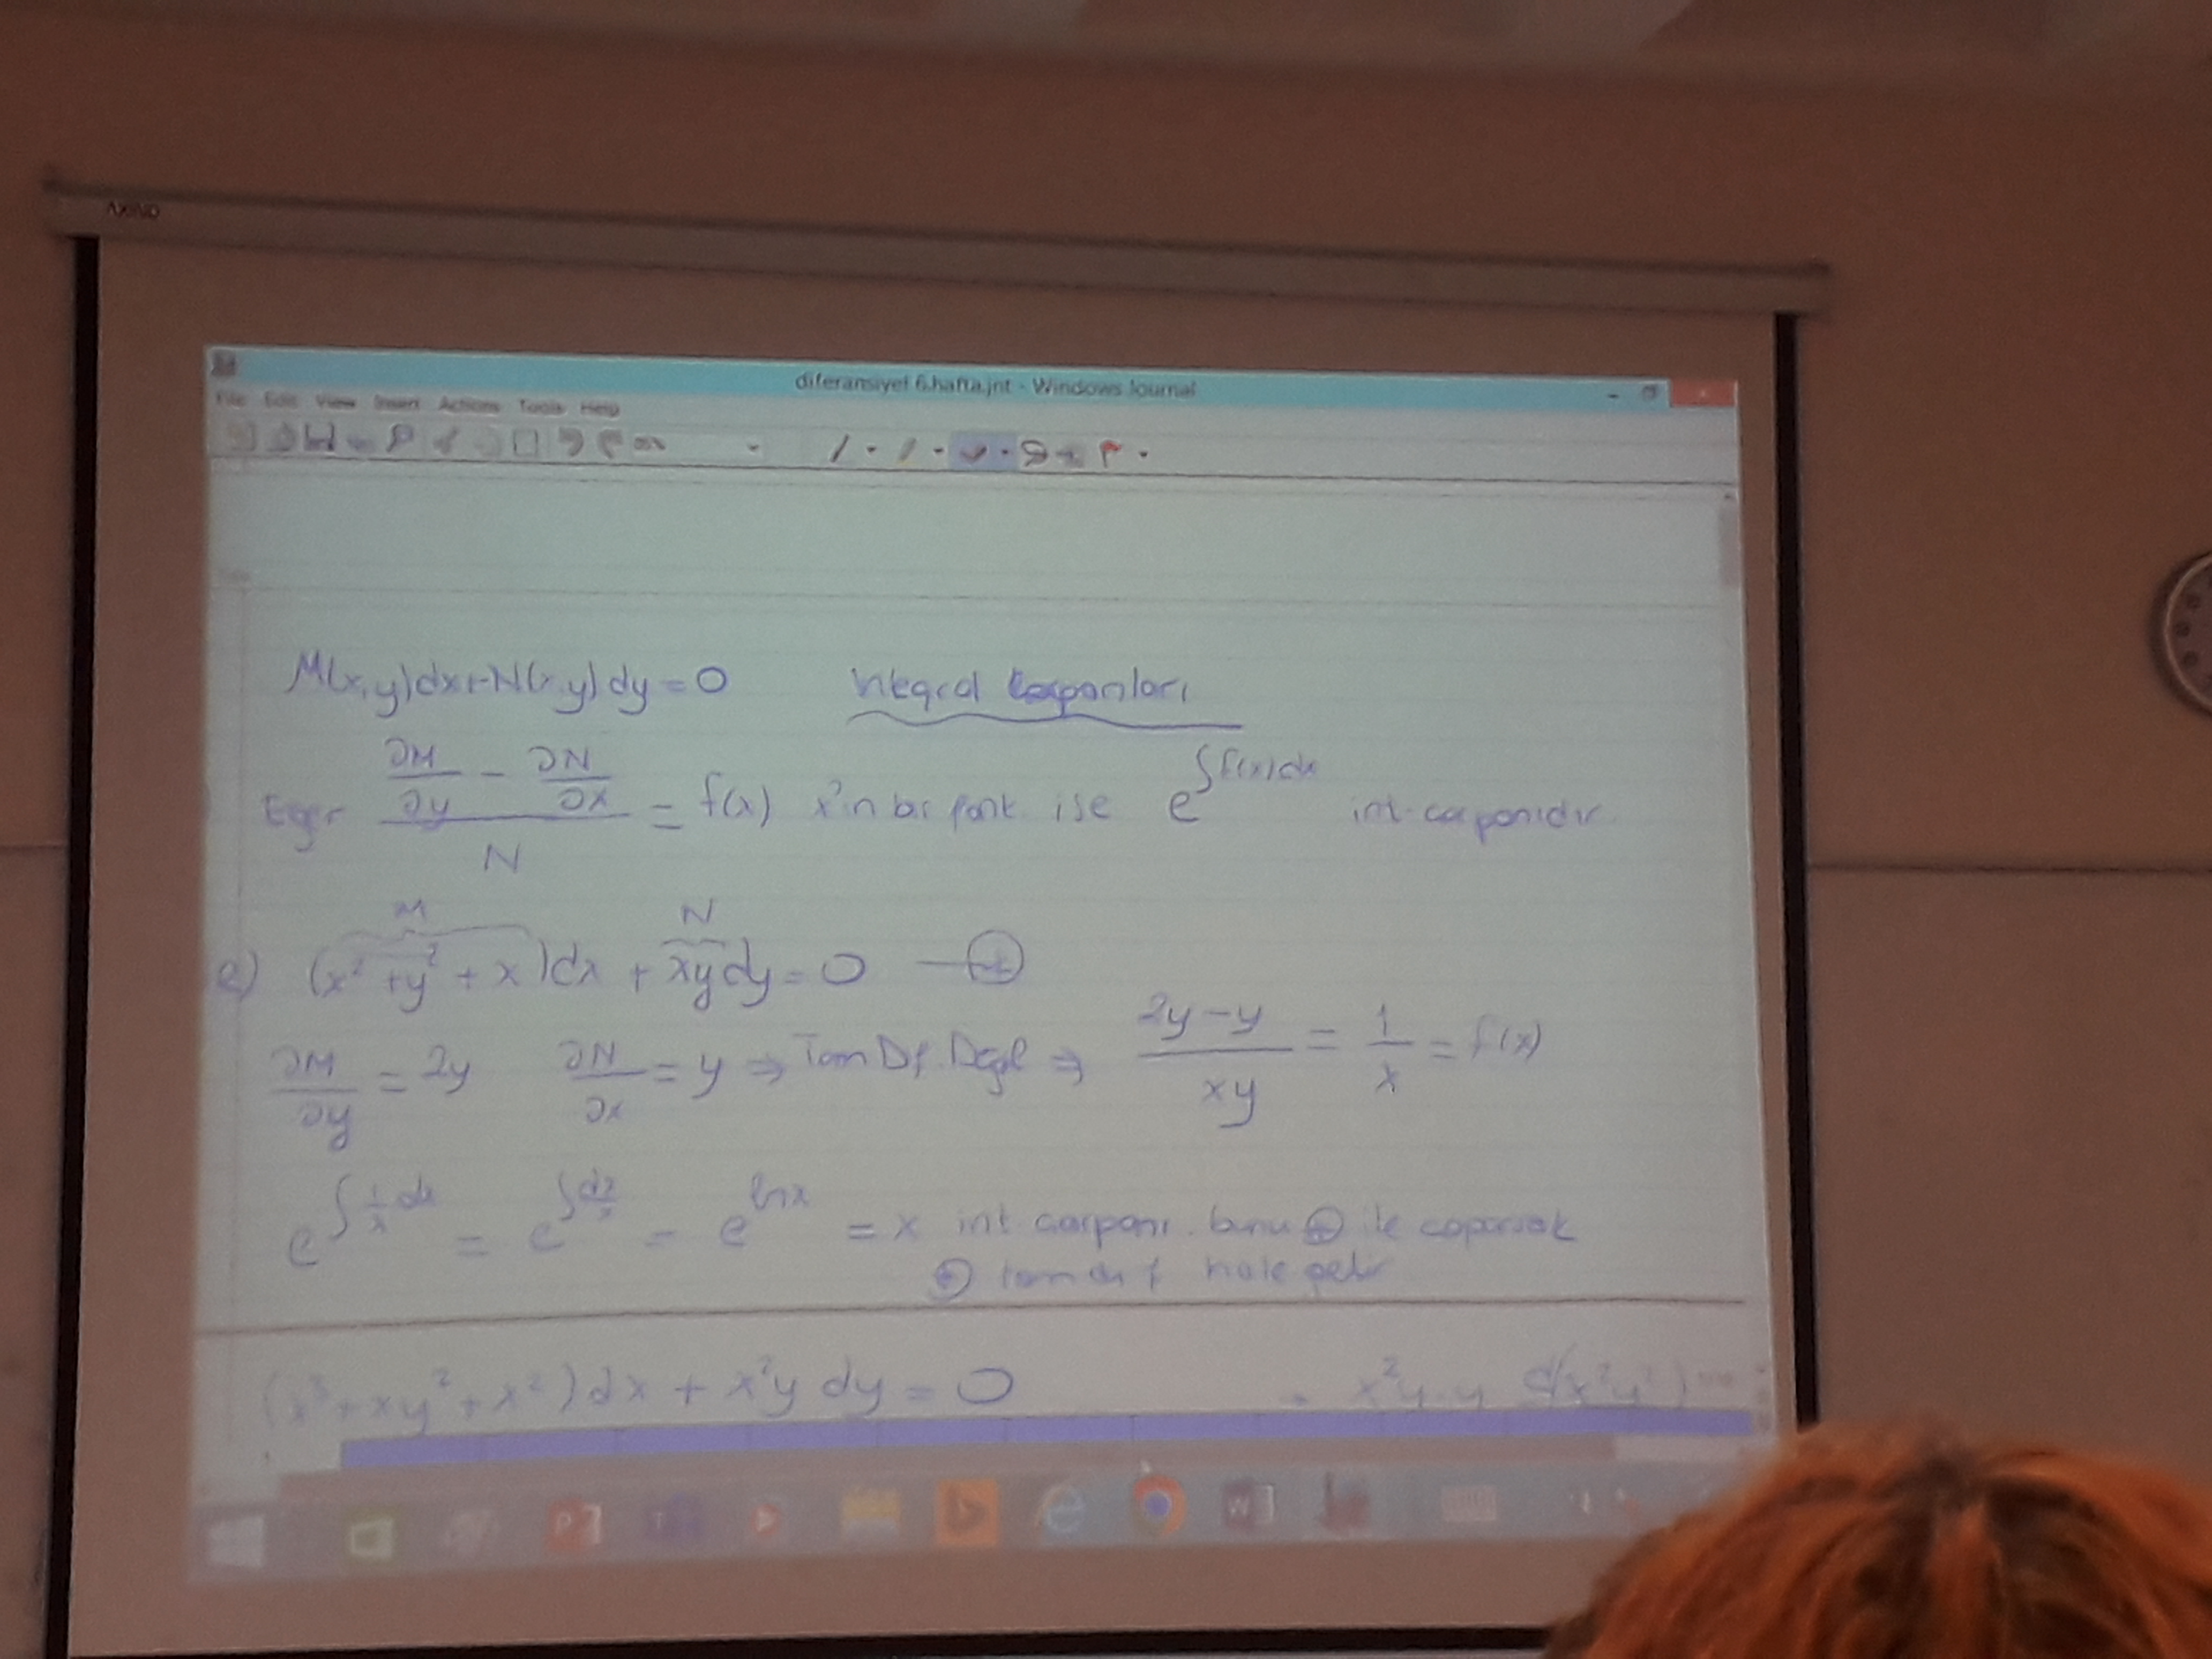 diferansiyel 6.hafta.jnt - Windows Journal
File Edit View Insert Actions Tools Help
M(x,y)dx+N(x,y)dy=0 integral çarpanları
Eğer (∂M/∂y - ∂N/∂x)/N = f(x) x'in bir fonk. ise e^∫f(x)dx int. çarpanıdır.
M N
e) (x²+y²+x)dx + xydy=0
∂M/∂y = 2y ∂N/∂x = y ⇒ Tam Df. Değil ⇒ (2y-y)/xy = 1/x = f(x)
e^∫(1/x)dx = e^∫dx/x = e^lnx = x int çarpanı. bunu ile çaparsak
tam dif hale gelir
(x³+xy²+x²)dx + x²y dy = 0